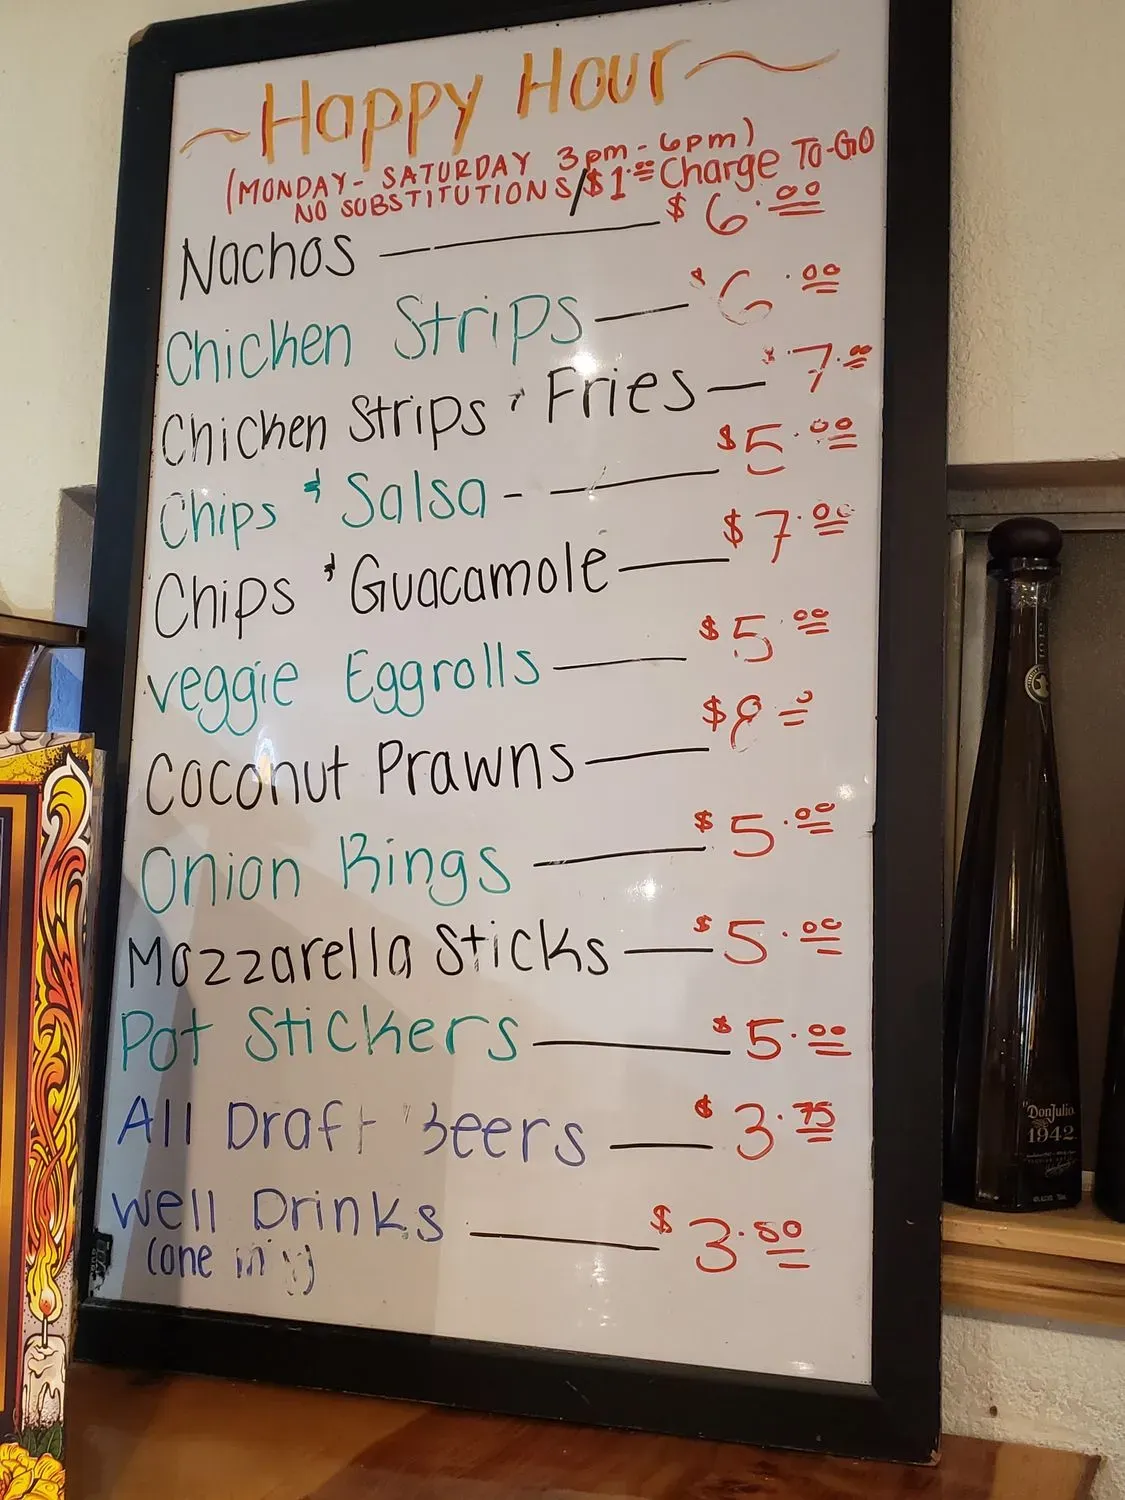 ~Happy Hour~
(MONDAY - SATURDAY 3pm - 6pm)
NO SUBSTITUTIONS/$1.00 Charge TO-GO
Nachos $6.00
Chicken Strips $6.00
Chicken Strips & Fries $7.00
Chips & Salsa $5.00
Chips & Guacamole $7.00
veggie Eggrolls $5.00
Coconut Prawns
Onion Rings $5.00
Mozzarella Sticks $5.00
Pot Stickers $5.00
All Draft Beers $3.75
well Drinks $3.50
(one in
"Don Julio
1942